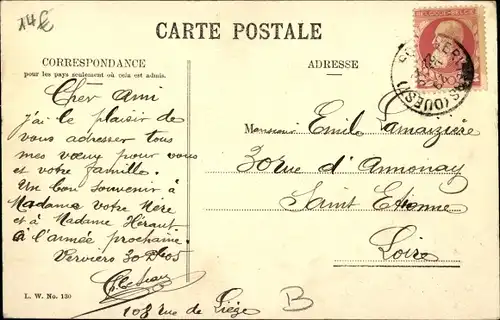 14€
CARTE POSTALE
BELGIQUE-BELGIE
VERVIERS (OUEST)
CORRESPONDANCE
pour les pays seulement où cela est admis.
ADRESSE
Cher Ami
j'ai le plaisir de
vous adresser tous
mes vœux pour vous
et votre famille.
Un bon souvenir à
Madame votre Mère
et à Madame Héraut
à l'année prochaine.
Verviers 30 05
108 rue de Liège
Monsieur Emile Lamaizière
30 rue d'Annonay
Saint Etienne
Loire
L. W. No. 130
B